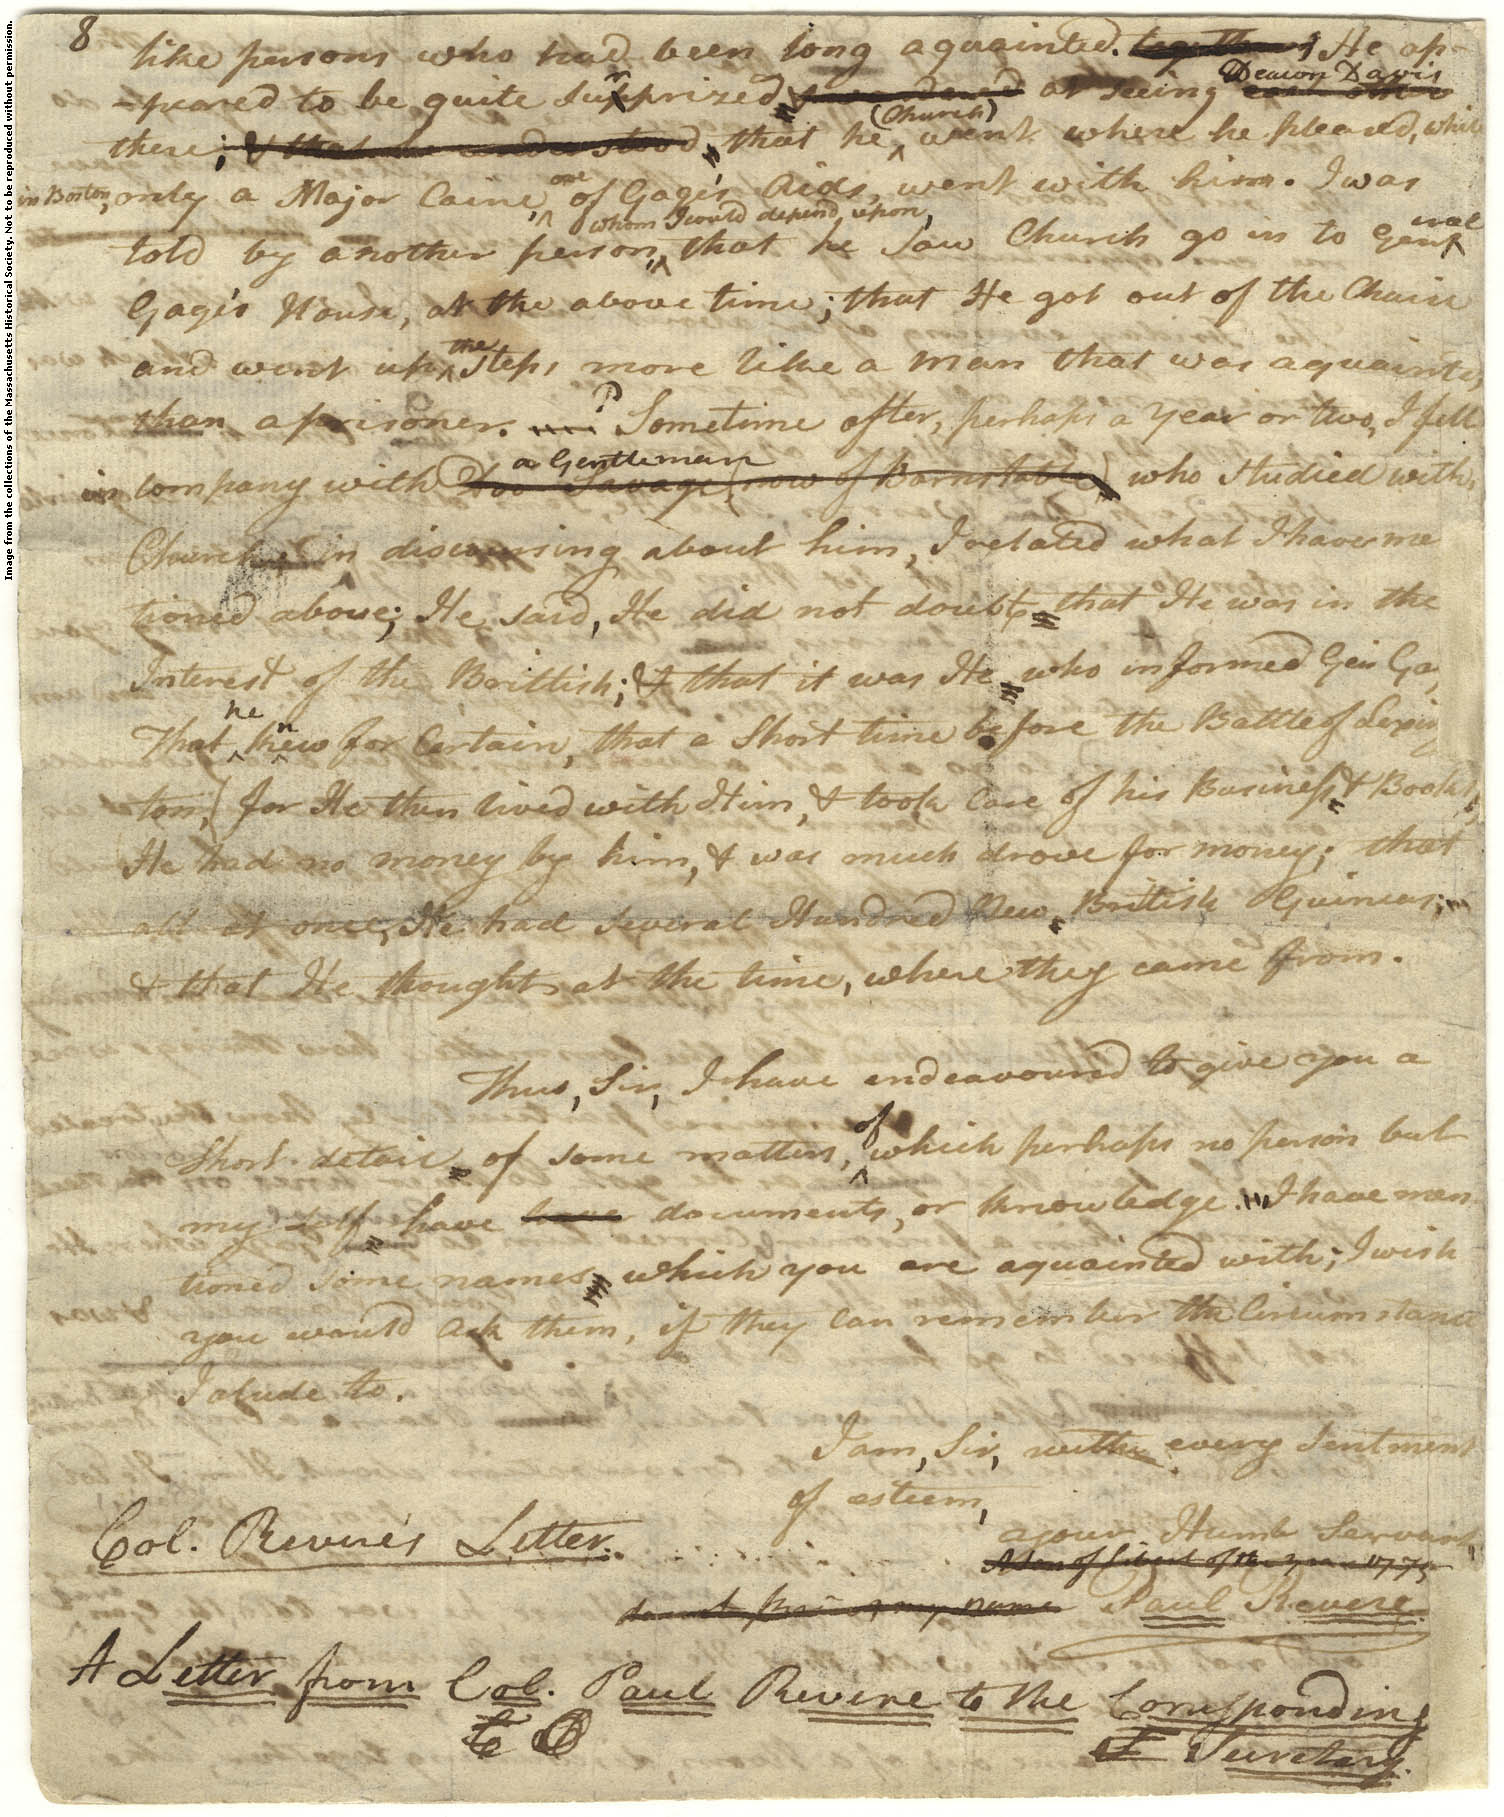 Image from the collections of the Massachusetts Historical Society. Not to be reproduced without permission.
8
like persons who had been long aquainted. together; He ap-
Deacon Davis
-peared to be quite surprized at seeing
(Church)
there; & that he understood, that he went where he pleased, while
in Boston, only a Major Caine, one of Gage's Aids, went with him. I was
whom I could depend upon,
told by another person, that he saw Church go in to General
Gage's House, at the above time; that He got out of the Chaise
and went up the steps more like a man that was aquainted,
than a prisoner.
P Sometime after, perhaps a Year or two, I fell
a Gentleman
in company with Doo Savage (now of Barnstable) who studied with
Church in discoursing about him, I related what I have me
tioned above; He said, He did not doubt that He was in the
Interest of the Brittish; & that it was He who informed Gen Ga
That he knew for Certain, that a Short time before the Battle of Lexing
ton, (for He then lived with Him, & took Care of his Business & Books)
He had no money by him, & was much drove for money; that
all at once, He had several Hundred New British Guineas;
& that He thought at the time, where they came from.
Thus, Sir, I have endeavoured to give you a
Short detail of some matters, of which perhaps no person but
my self have have documents, or knowledge. I have men
tioned some names which you are aquainted with; I wish
you would Ask them, if they can remember the Circumstance
I alude to.
I am, Sir, with every Sentment
of esteem,
your Humb Servant
A Son of Liberty of the year 1775
Col. Revere's Letter.
do not print my name Paul Revere
A Letter from Col. Paul Revere to the Corresponding
Secretary.